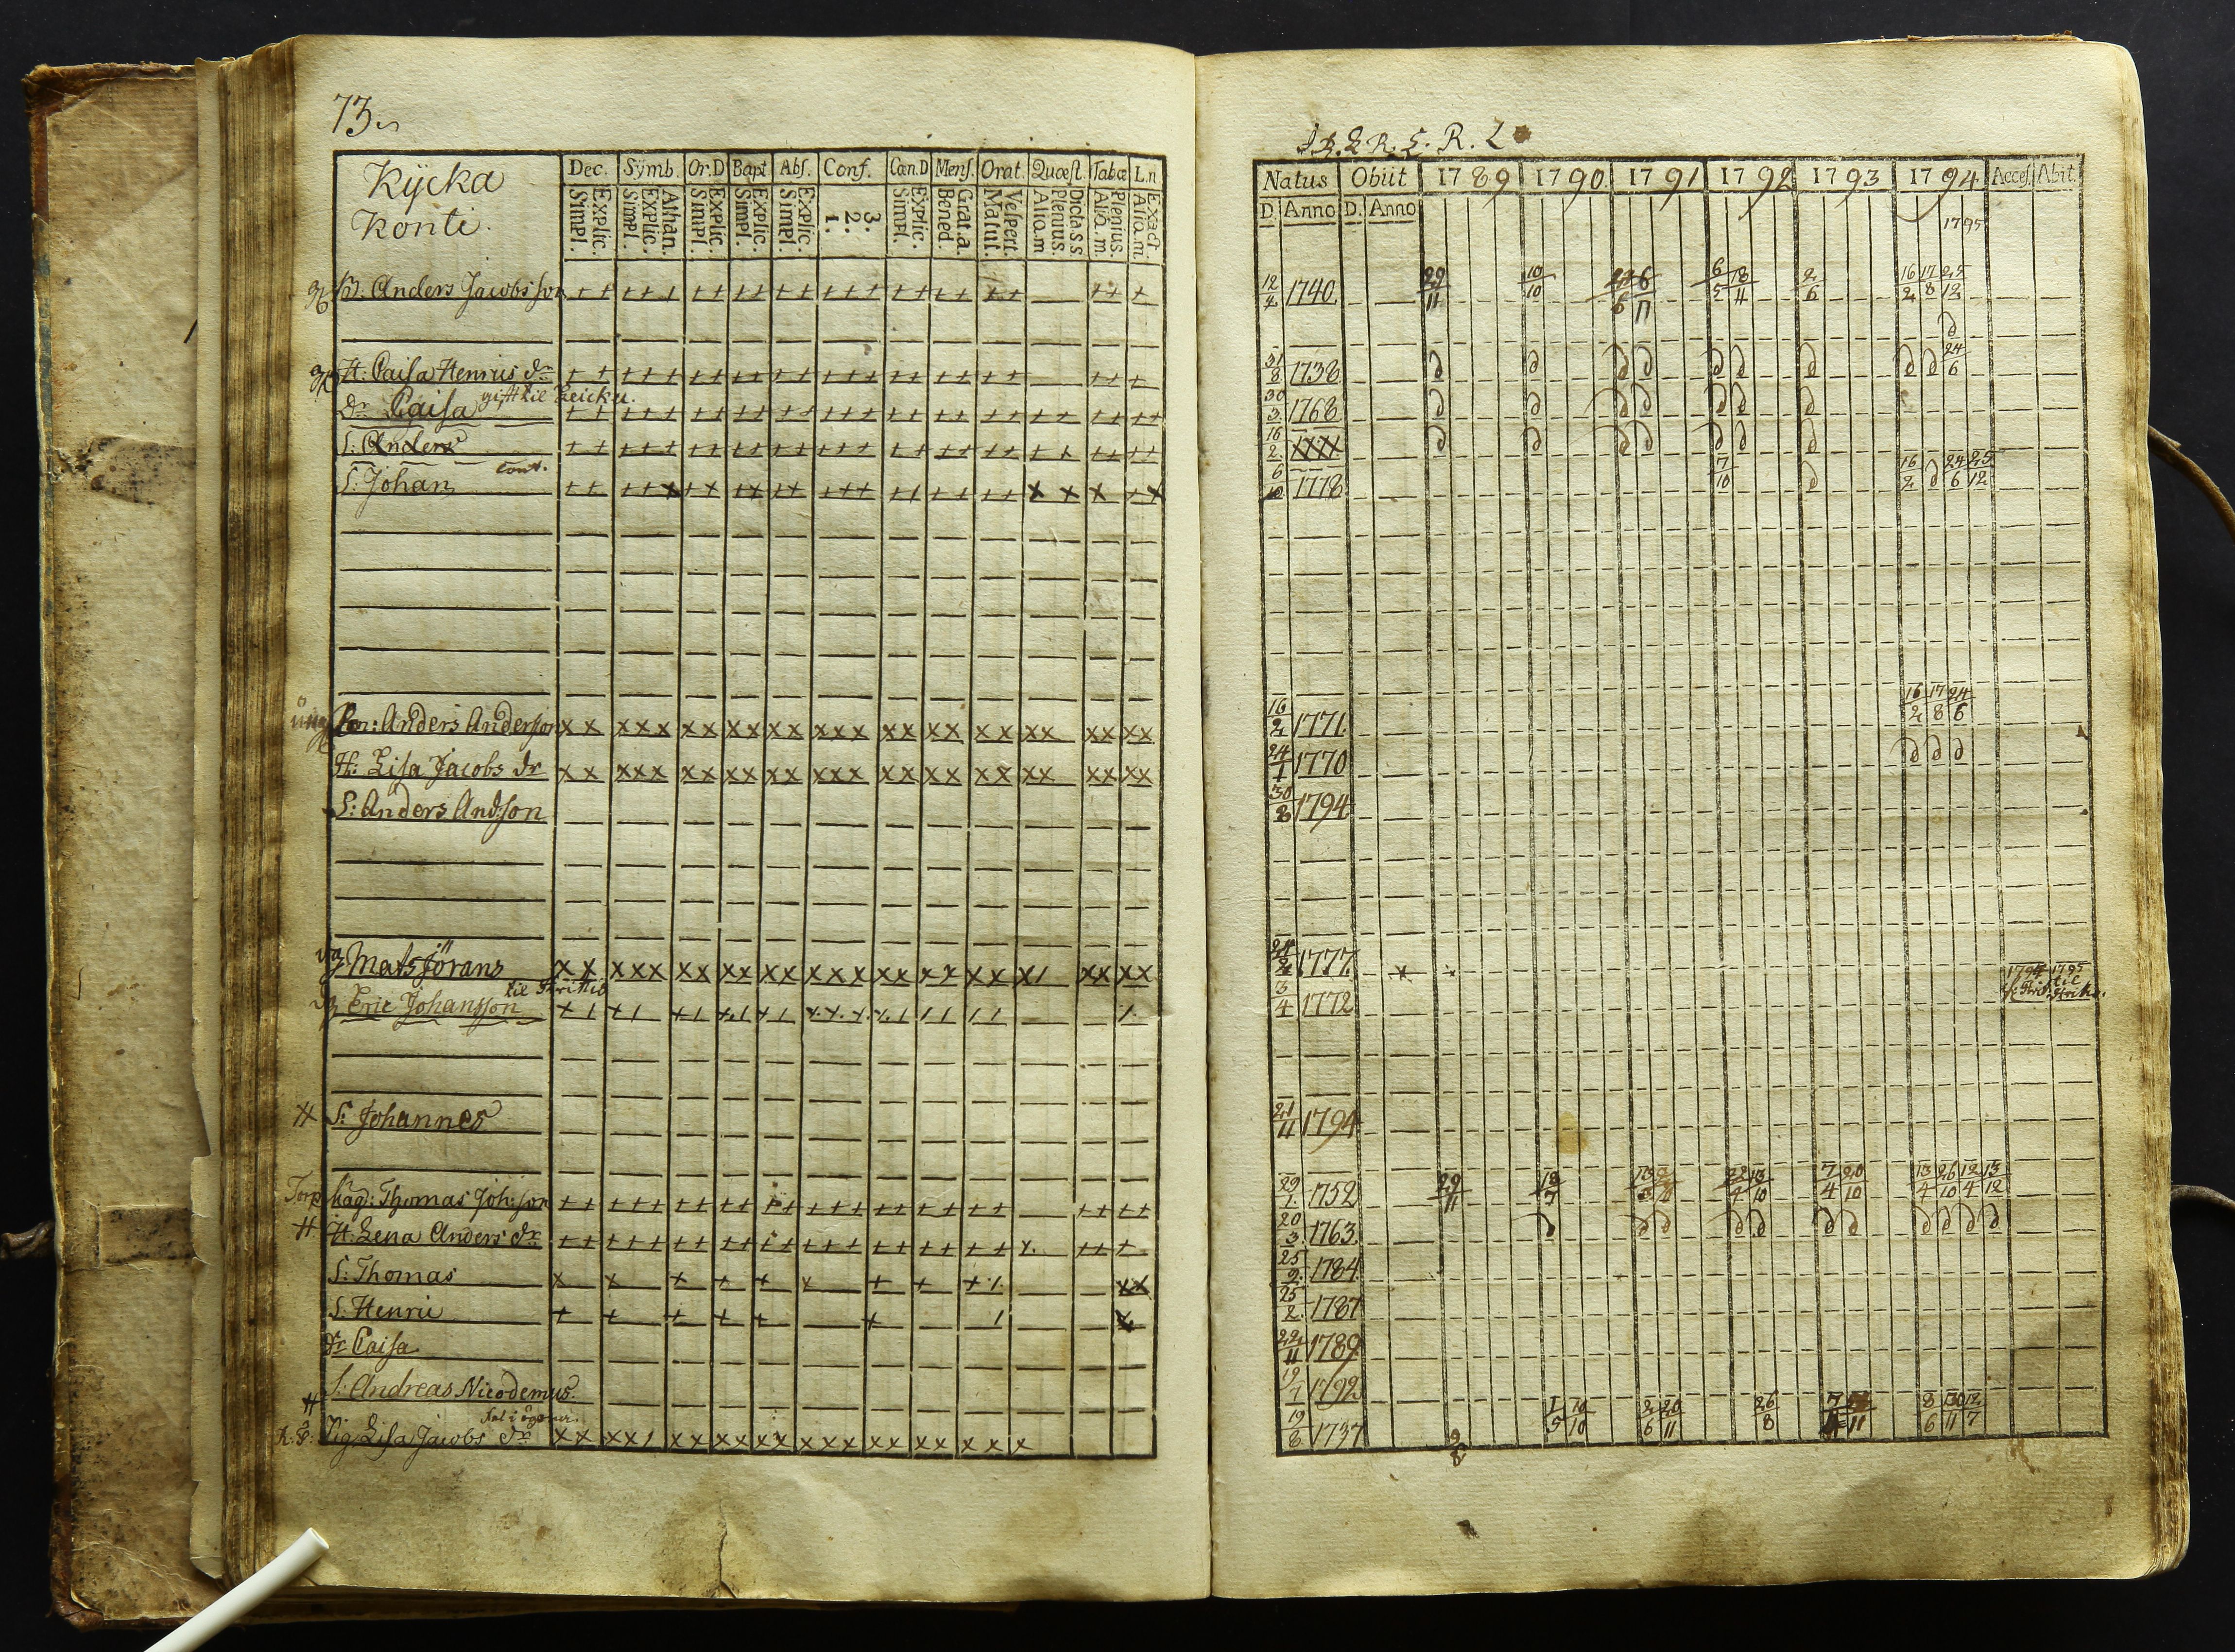 73.
Kÿcka
Konti.
Dec. Sÿmb. Or.D Bapt Abs. Conf. Can.D Mens. Orat. Quæst. Tabæ L.n
Explic. Simpl. Athan. Explic. Simpl. Explic. Simpl. Explic. Simpl. Explic. Simpl. 3. 2. 1. Explic. Simpl. Grat.a Bened. Vespert. Matut. Dicta SS Plenius. Aliq.m Plenius. Aliq.m Exact. Aliq.m
Anders Jacobsson
H: Caisa Henrics dr
gift til
Dr Caisa
S: Anders
S: Johan
Anders Andersson
H: Lisa Jacobs dr
S: Anders And:son
Mats Jörans
Eric Johansson
S: Johannes
Torp
Thomas Joh:son
H: Lena Anders dr
S: Thomas
S: Henric
Dr Caisa
S: Andreas Nicodemus
Lisa Jacobs dr
Natus Obiit 1789 1790. 1791 1792 1793 1794 Acces. Abit.
D. Anno D. Anno
1795
12/4 1740 29/11 10/10 6/11 6/5 18/11 2/6 16/2 17/8 25/12
31/8 1738 24/6
30/3 1768
16/2
6/10 1778 7/10 16/2 24/6 25/12
16/2 1771 16/2 17/8 24/6
24/1 1770
30/8 1794
1777
3/4 1772
1794 1795
til
21/11 1794
29/1 1752 29/11 7/4 20/10 13/4 26/10 12/4 13/12
20/3 1763
25/9 1784
25/2 1787
22/11 1789
19/1 1792
19/8 1737 1/5 10/10 2/6 20/11 26/8 8/6 30/11 12/7